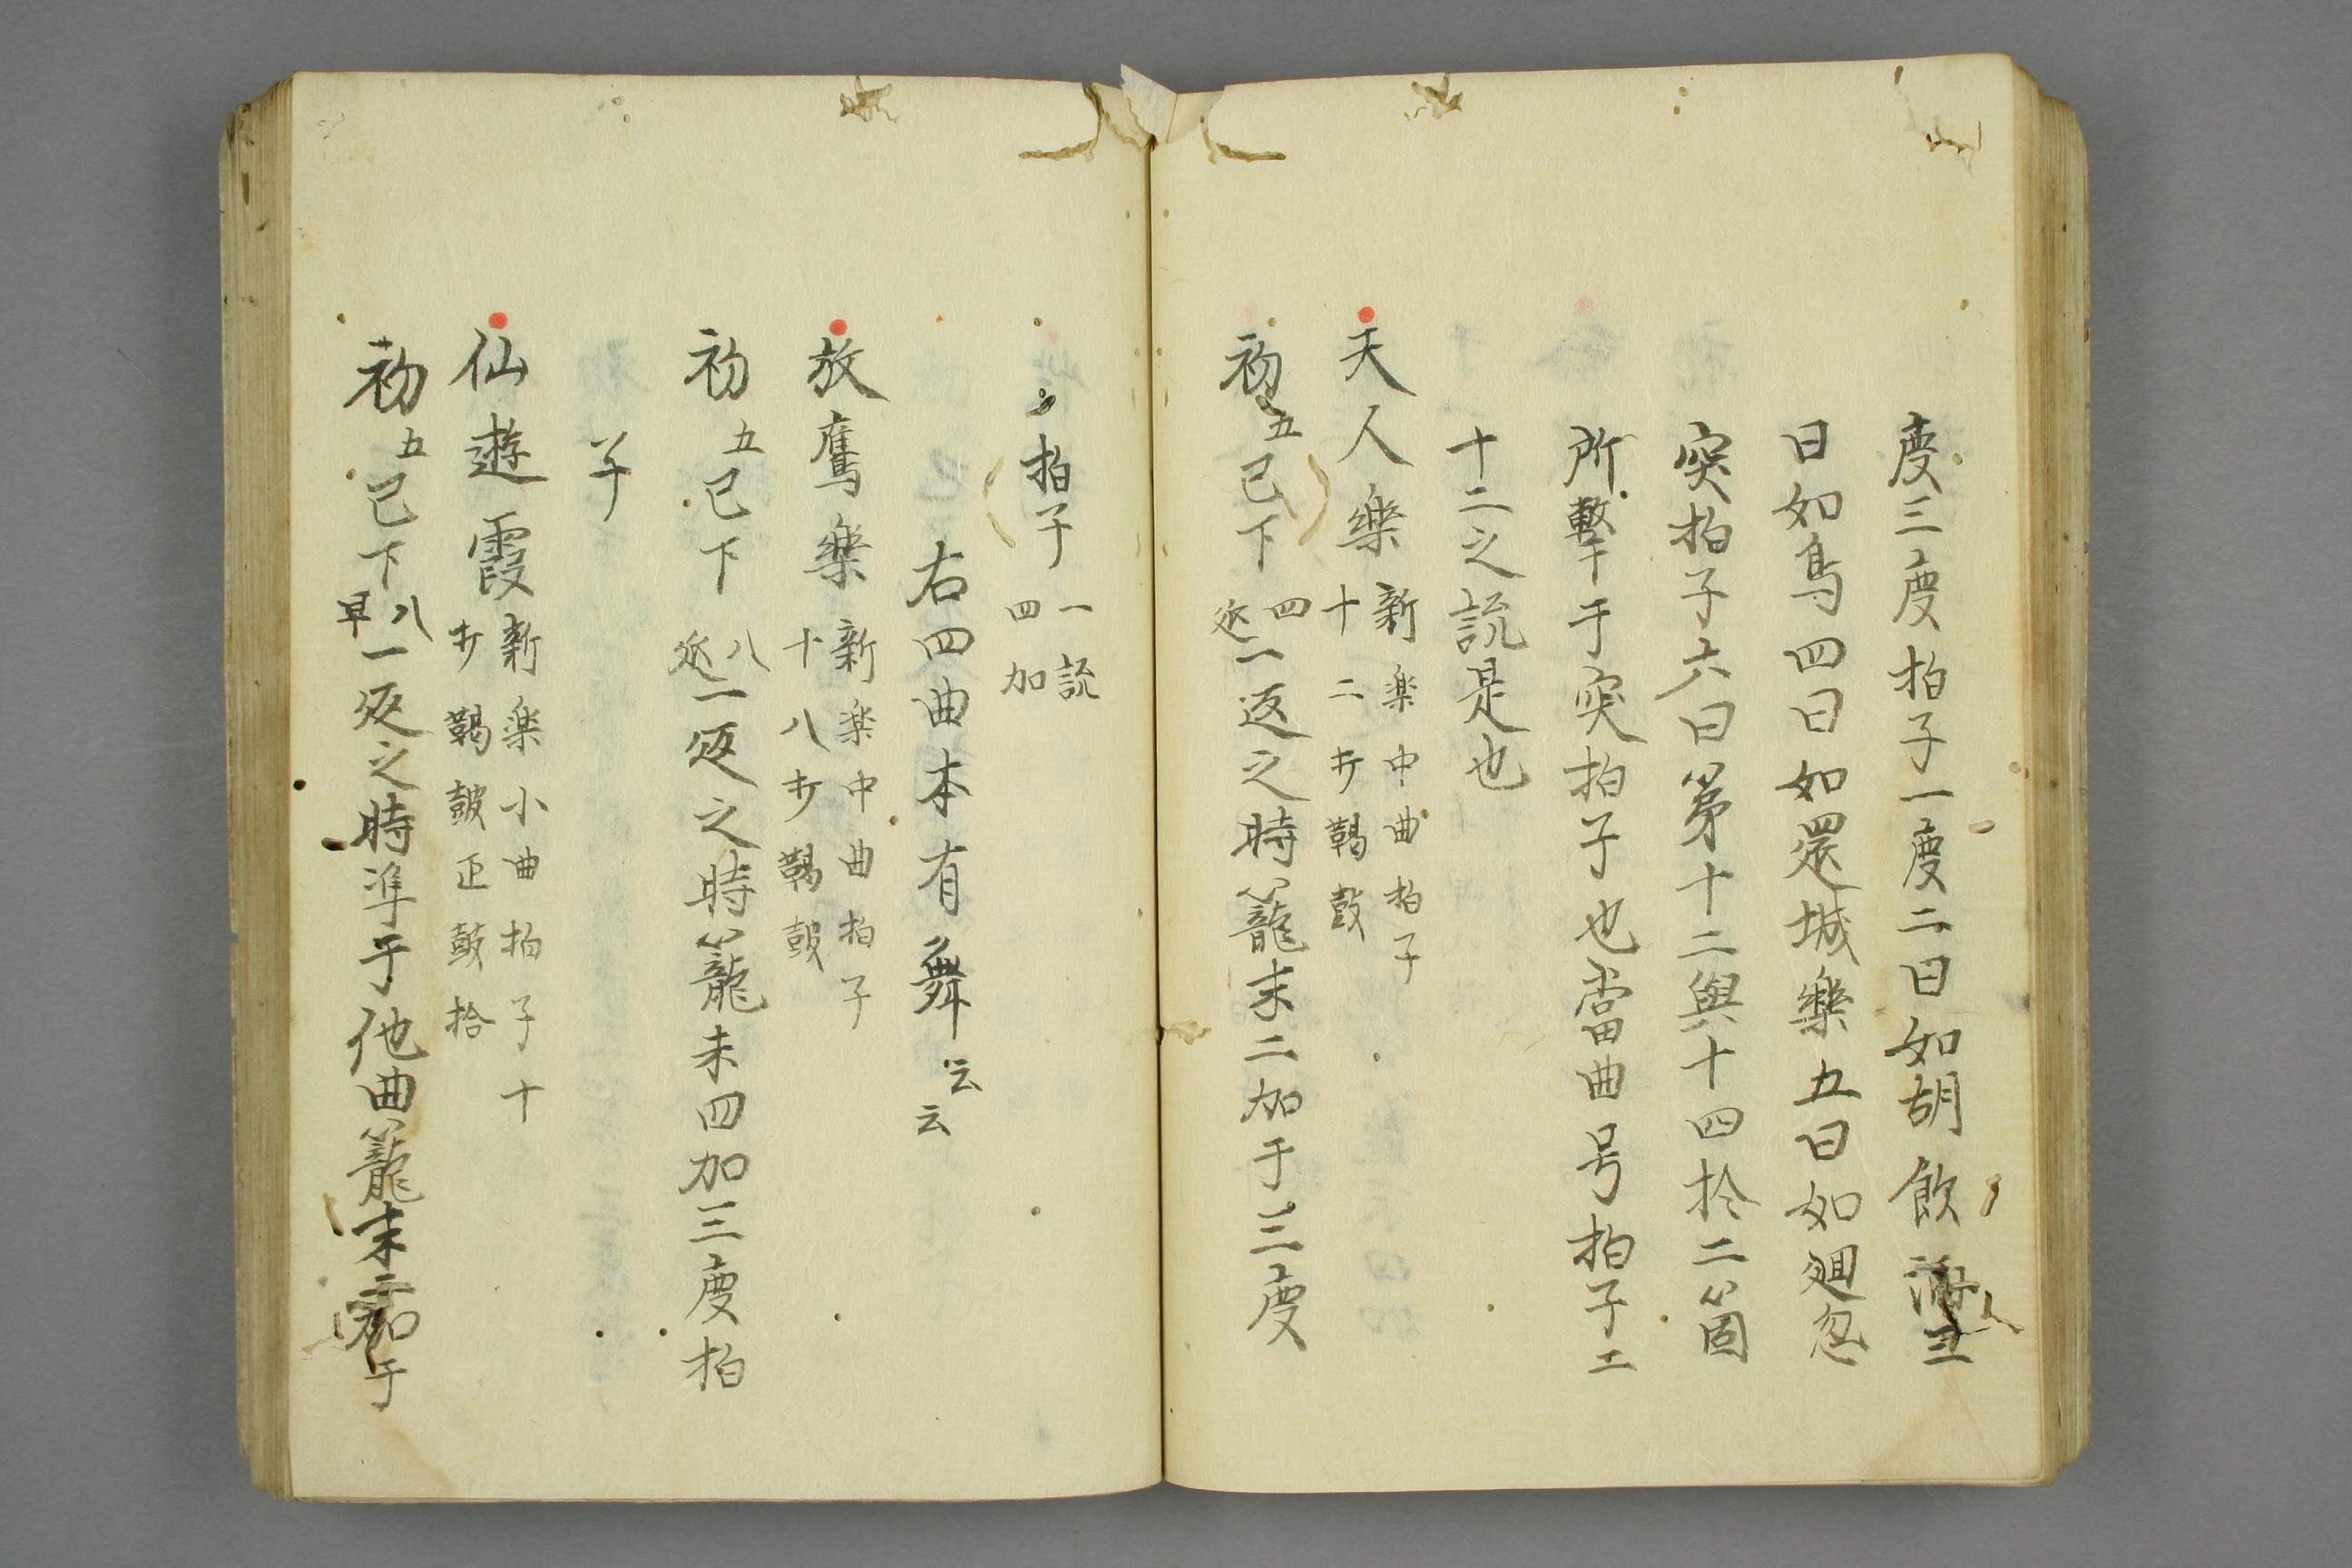 度三度拍子一度二曰如胡飲酒三
曰如鳥四曰如還城樂五曰如廻忽
突拍子六曰第十二與十四拾二箇
所擊于突拍子也當曲号拍子二
十二之説是也
天人樂 新楽中曲拍子
十二 才鞨鼓
初五已下 四
返一返之時籠末二加于三度
拍子 一説
四加
右四曲本有舞云云
放鷹樂 新楽中曲拍子
十八才鞨鼓
初五已下 八
返一返之時籠末四加三度拍
子
仙遊霞 新楽小曲拍子十
才鞨鼓正鼓拾
初五已下 八
早一返之時準于他曲籠末加于